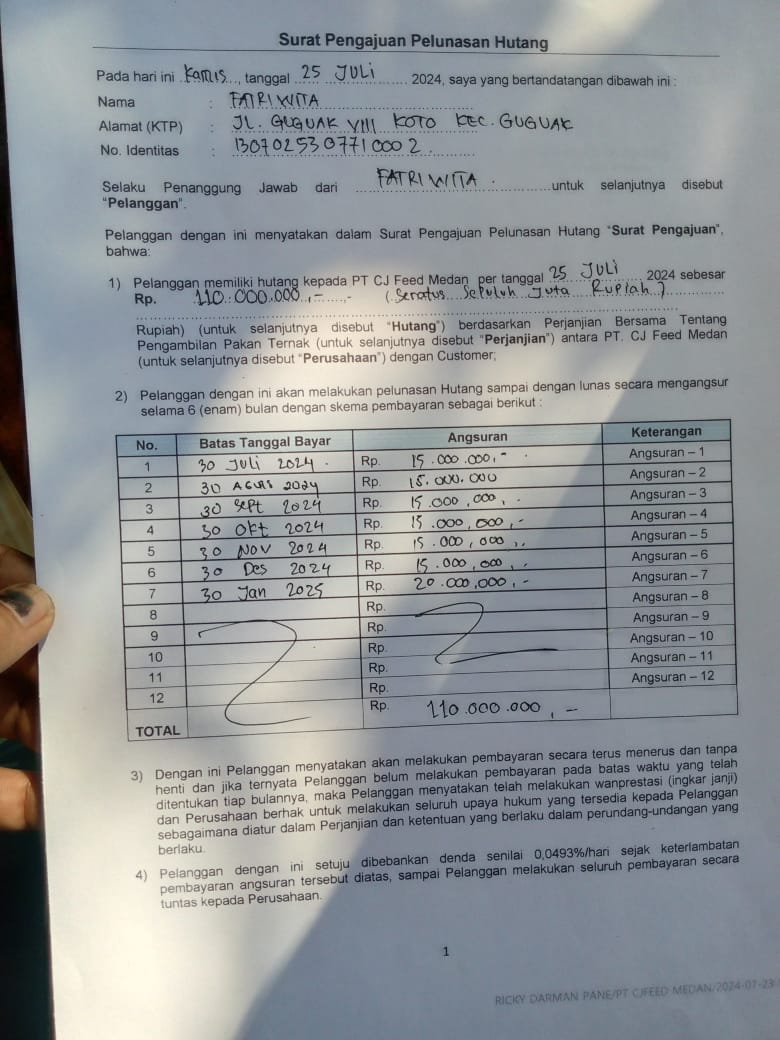 Surat Pengajuan Pelunasan Hutang
Pada hari ini Kamis, tanggal 25 JULI 2024, saya yang bertandatangan dibawah ini :
Nama : FATRIWITA
Alamat (KTP) : JL. GUGUAK VIII KOTO KEC. GUGUAK
No. Identitas : 1307025307710002
Selaku Penanggung Jawab dari FATRIWITA untuk selanjutnya disebut
"Pelanggan".
Pelanggan dengan ini menyatakan dalam Surat Pengajuan Pelunasan Hutang "Surat Pengajuan",
bahwa:
1) Pelanggan memiliki hutang kepada PT CJ Feed Medan per tanggal 25 JULI 2024 sebesar
Rp. 110.000.000,- (Seratus Sepuluh Juta Rupiah)
Rupiah) (untuk selanjutnya disebut "Hutang") berdasarkan Perjanjian Bersama Tentang
Pengambilan Pakan Ternak (untuk selanjutnya disebut "Perjanjian") antara PT. CJ Feed Medan
(untuk selanjutnya disebut "Perusahaan") dengan Customer;
2) Pelanggan dengan ini akan melakukan pelunasan Hutang sampai dengan lunas secara mengangsur
selama 6 (enam) bulan dengan skema pembayaran sebagai berikut :
No. Batas Tanggal Bayar Angsuran Keterangan
1 30 Juli 2024 Rp. 15.000.000,- Angsuran – 1
2 30 AGUS 2024 Rp. 15.000.000 Angsuran – 2
3 30 Sept 2024 Rp. 15.000,000,. Angsuran – 3
4 30 Okt 2024 Rp. 15.000,000,- Angsuran – 4
5 30 NOV 2024 Rp. 15.000,000,. Angsuran – 5
6 30 Des 2024 Rp. 15.000,000,. Angsuran – 6
7 30 Jan 2025 Rp. 20.000,000,- Angsuran – 7
8 Rp. Angsuran – 8
9 Rp. Angsuran – 9
10 Rp. Angsuran – 10
11 Rp. Angsuran – 11
12 Rp. Angsuran – 12
TOTAL Rp. 110.000.000,-
3) Dengan ini Pelanggan menyatakan akan melakukan pembayaran secara terus menerus dan tanpa
henti dan jika ternyata Pelanggan belum melakukan pembayaran pada batas waktu yang telah
ditentukan tiap bulannya, maka Pelanggan menyatakan telah melakukan wanprestasi (ingkar janji)
dan Perusahaan berhak untuk melakukan seluruh upaya hukum yang tersedia kepada Pelanggan
sebagaimana diatur dalam Perjanjian dan ketentuan yang berlaku dalam perundang-undangan yang
berlaku.
4) Pelanggan dengan ini setuju dibebankan denda senilai 0,0493%/hari sejak keterlambatan
pembayaran angsuran tersebut diatas, sampai Pelanggan melakukan seluruh pembayaran secara
tuntas kepada Perusahaan.
1
RICKY DARMAN PANE/PT CJFEED MEDAN/2024-07-23